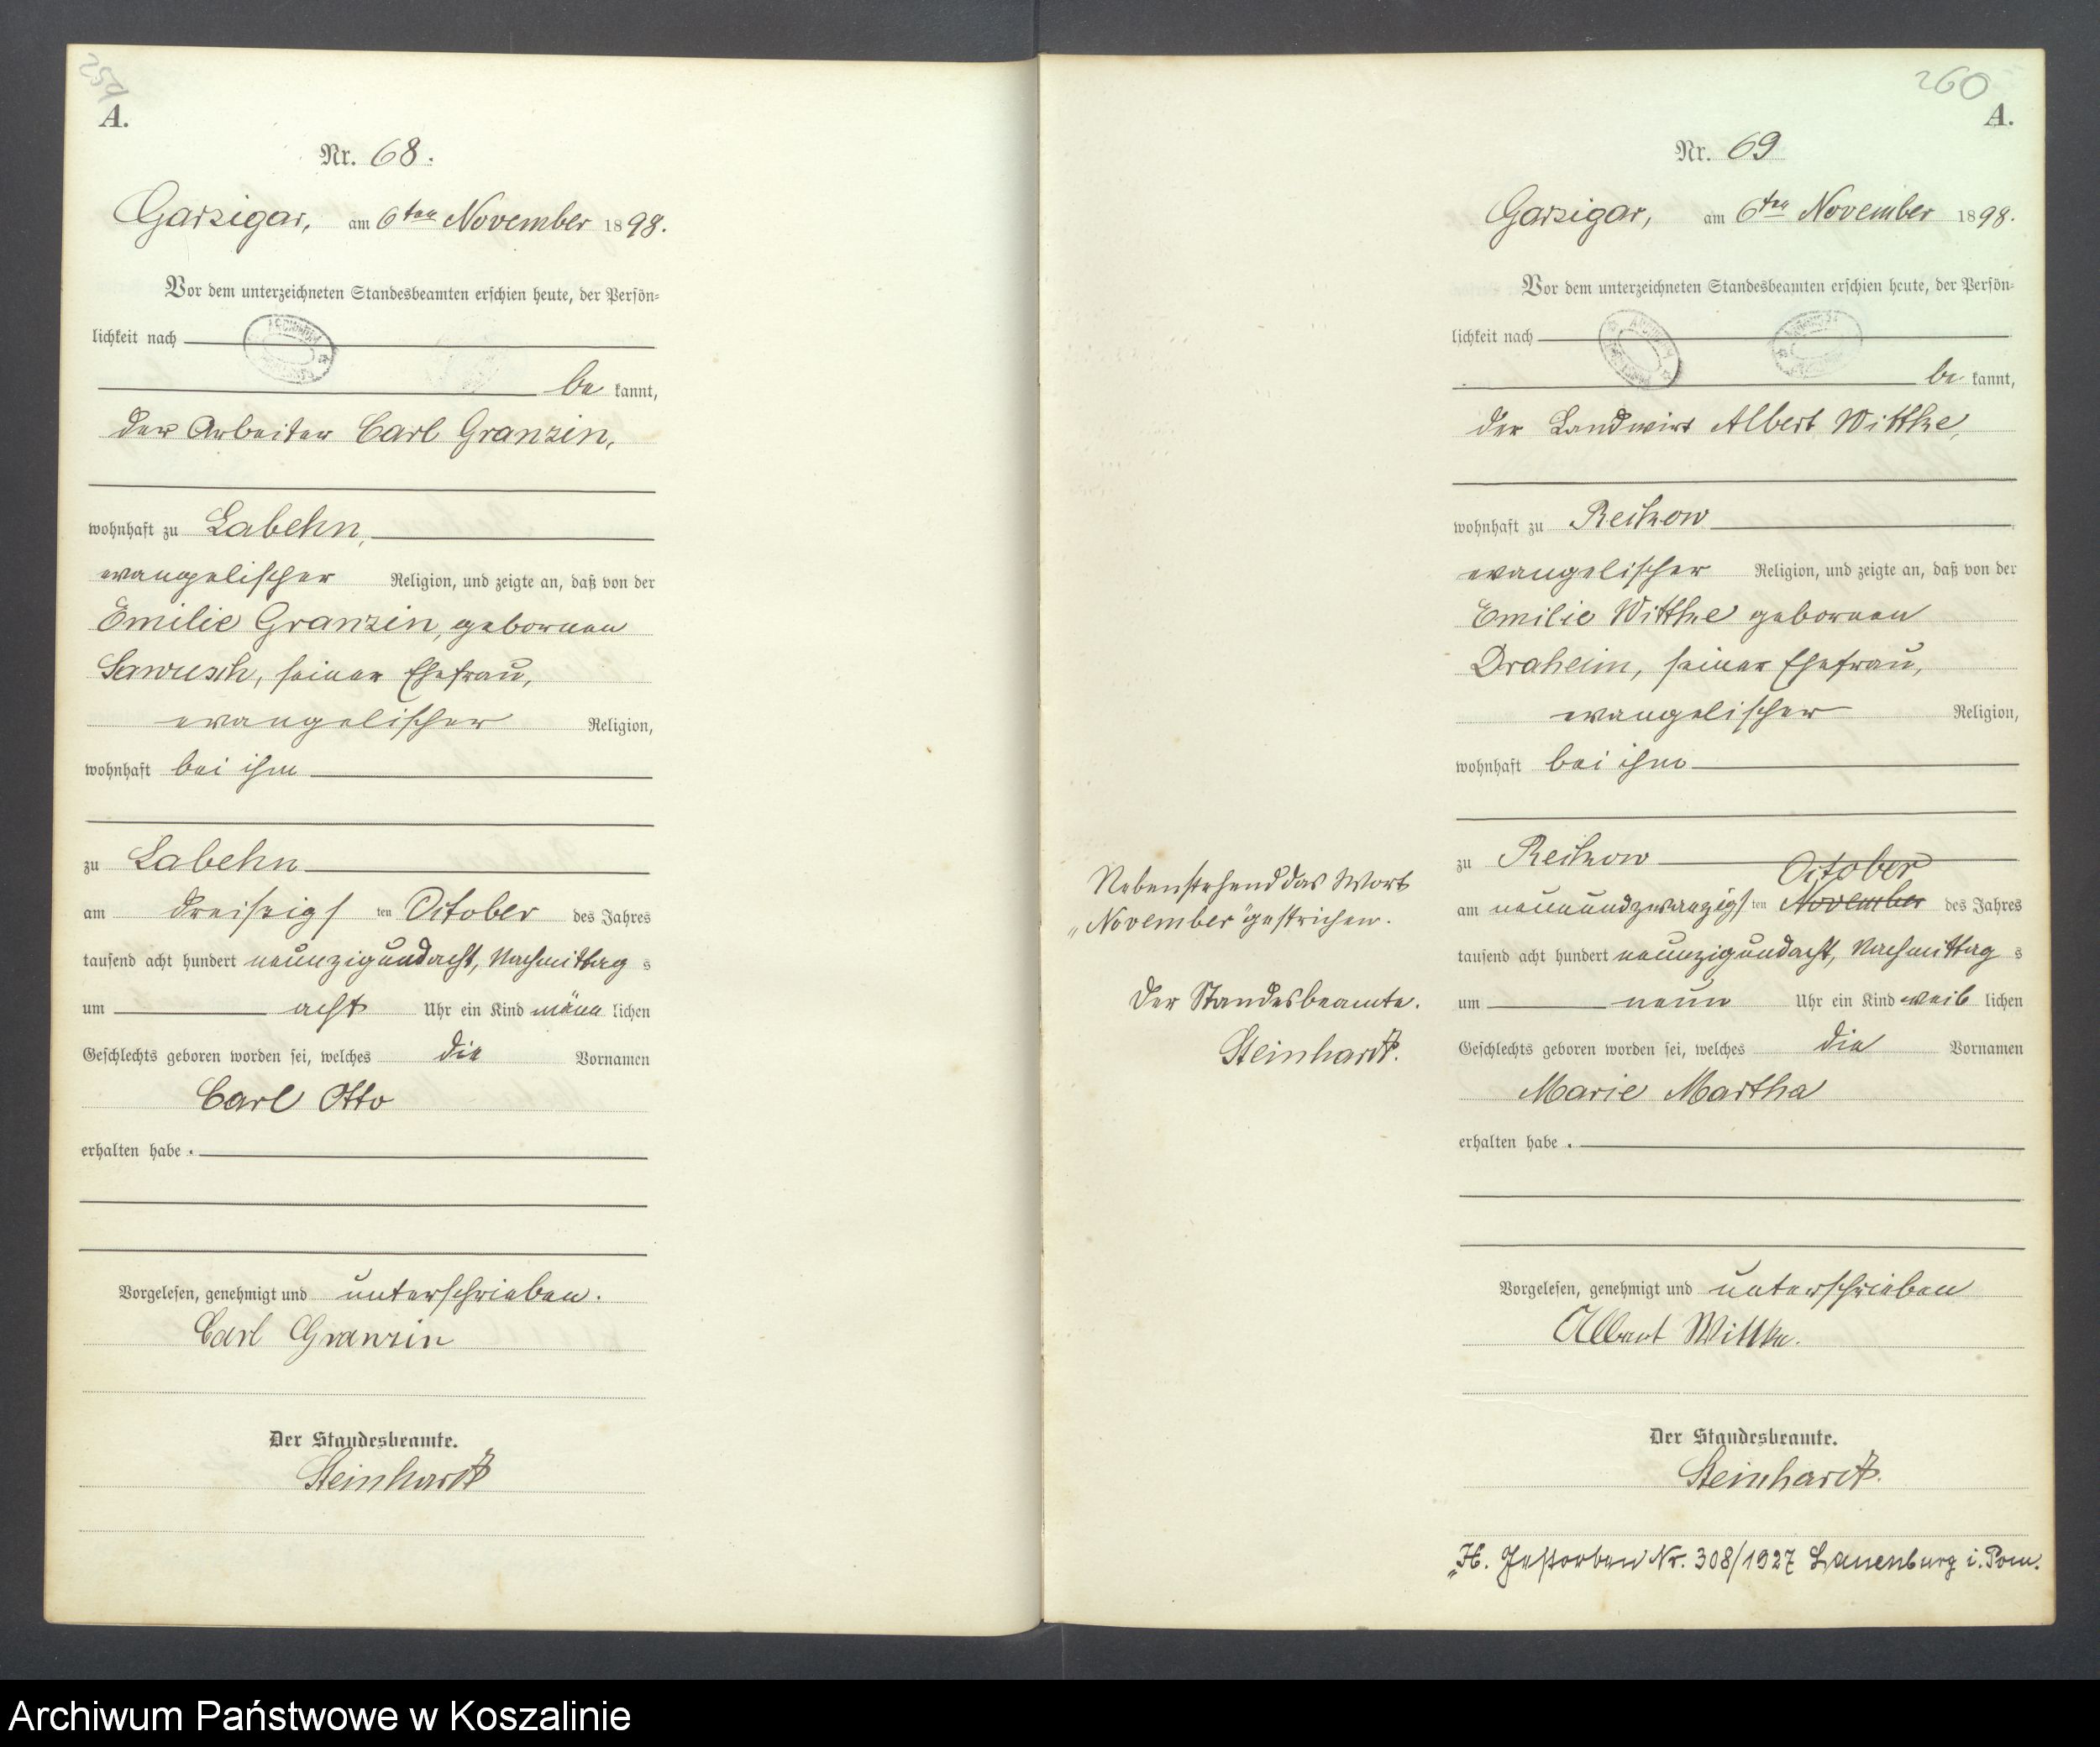 259
A.
Nr. 68.
Garzigar, am 6ten November 1898.
Vor dem unterzeichneten Standesbeamten erschien heute, der Persön-
lichkeit nach
be kannt,
der Arbeiter Carl Granzin,
wohnhaft zu Labehn,
evangelischer Religion, und zeigte an, daß von der
Emilie Granzin, geborenen
, seiner Ehefrau,
evangelischer Religion,
wohnhaft bei ihm
zu Labehn
am dreißigs ten October des Jahres
tausend acht hundert neunzigundacht, Nachmittag s
um acht Uhr ein Kind männ lichen
Geschlechts geboren worden sei, welches die Vornamen
Carl Otto
erhalten habe.
Vorgelesen, genehmigt und unterschrieben.
Carl Granzin
Der Standesbeamte.
Steinhardt
260
A.
Nr. 69
Garzigar, am 6ten November 1898.
Vor dem unterzeichneten Standesbeamten erschien heute, der Persön-
lichkeit nach
be kannt,
der Landwirt Albert Witthe,
wohnhaft zu Reckow
evangelischer Religion, und zeigte an, daß von der
Emilie Witthe geborenen
Draheim, seiner Ehefrau,
evangelischer Religion,
wohnhaft bei ihm
zu Reckow
October
am neunundzwanzigs ten November des Jahres
tausend acht hundert neunzigundacht, Nachmittag s
um neun Uhr ein Kind weib lichen
Geschlechts geboren worden sei, welches die Vornamen
Marie Martha
erhalten habe.
Vorgelesen, genehmigt und unterschrieben
Albert Wittke.
Der Standesbeamte.
Steinhardt.
Nebenstehend das Wort
„November" gestrichen.
Der Standesbeamte.
Steinhardt.
„H. Gestorben Nr. 308/1927 Lauenburg i. Pom.
Archiwum Państwowe w Koszalinie